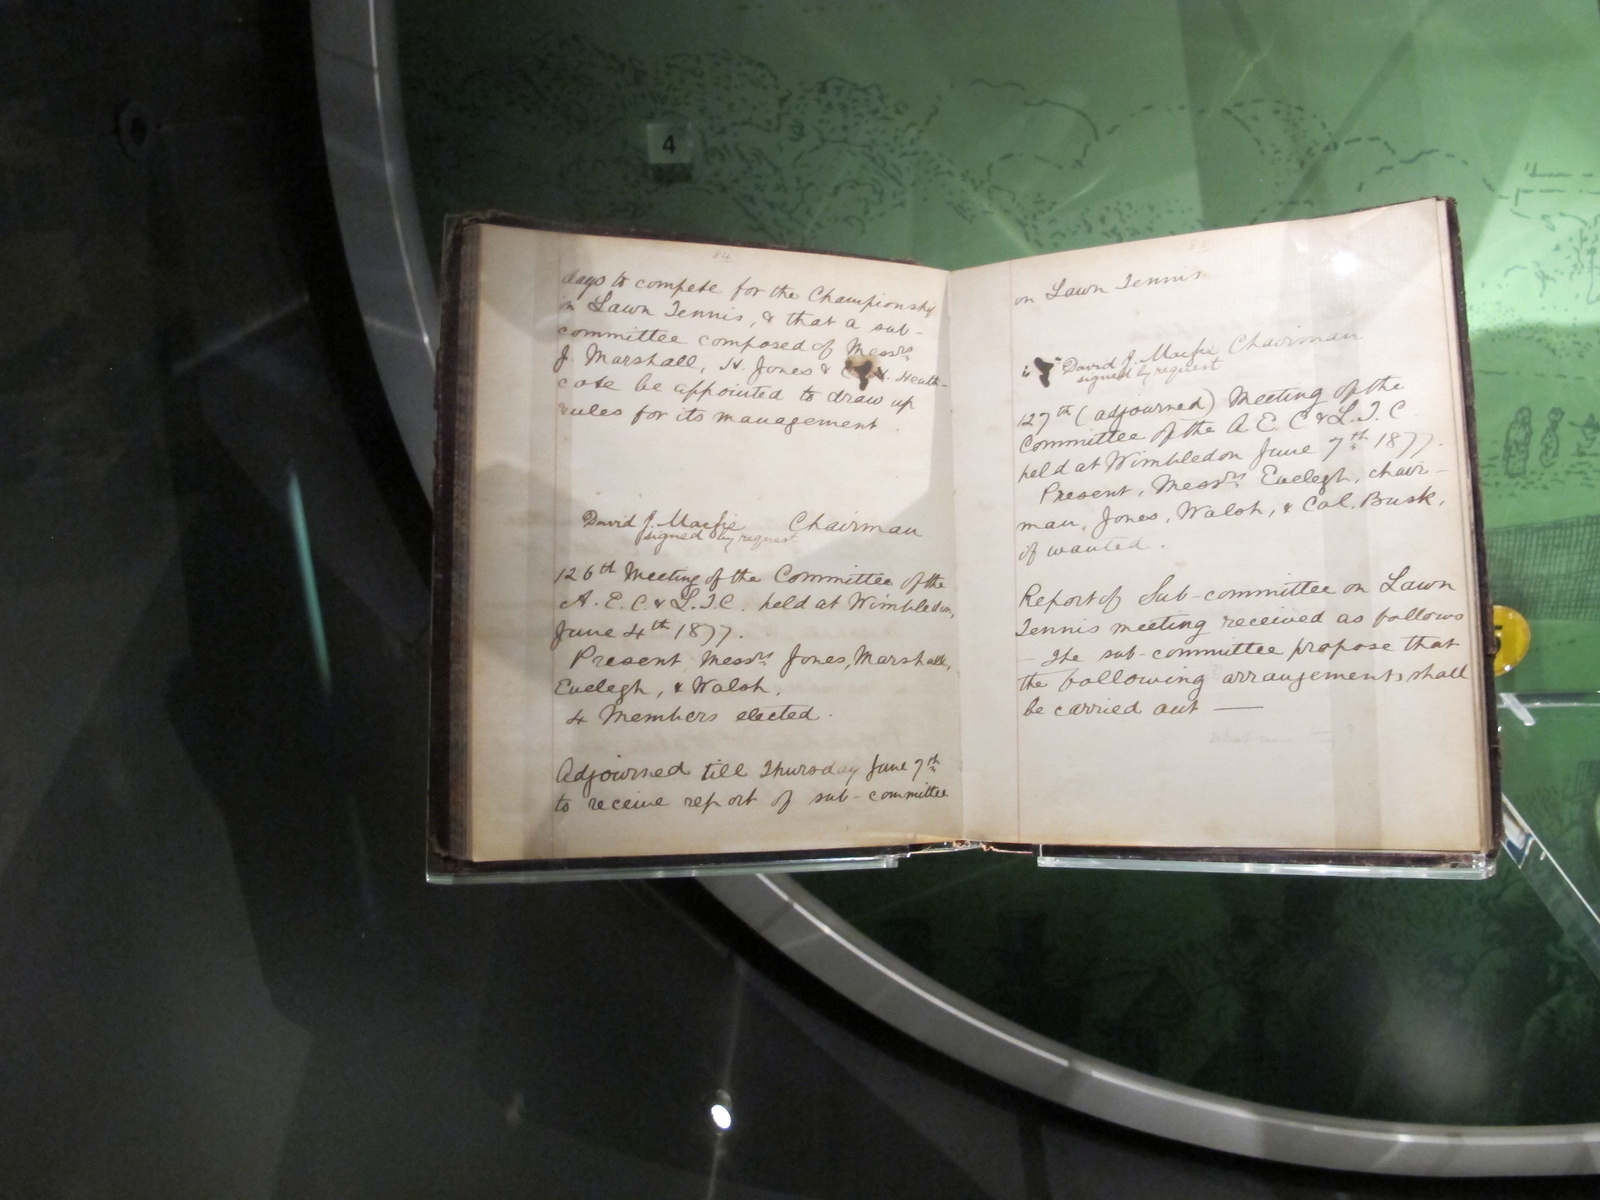 4
84
days to compete for the Championship
in Lawn Tennis, & that a sub-
committee composed of Messrs
J. Marshall, H. Jones & C. Heath-
cote be appointed to draw up
rules for its management.
David J. Macfie Chairman
signed by request
126th Meeting of the Committee of the
A. E. C. & L. T. C. held at Wimbledon,
June 4th 1877.
Present Messrs Jones, Marshall,
Evelegh, & Walsh.
4 Members elected.
Adjourned till Thursday June 7th
to receive report of sub-committee
on Lawn Tennis
David J. Macfie Chairman
signed by request
127th (adjourned) Meeting of the
Committee of the A. E. C & L. T. C
held at Wimbledon June 7th 1877.
Present, Messrs Evelegh, chair-
man, Jones, Walsh, & Col. Busk,
if wanted.
Report of Sub-committee on Lawn
Tennis meeting received as follows
— The sub-committee propose that
the following arrangements shall
be carried out —
5